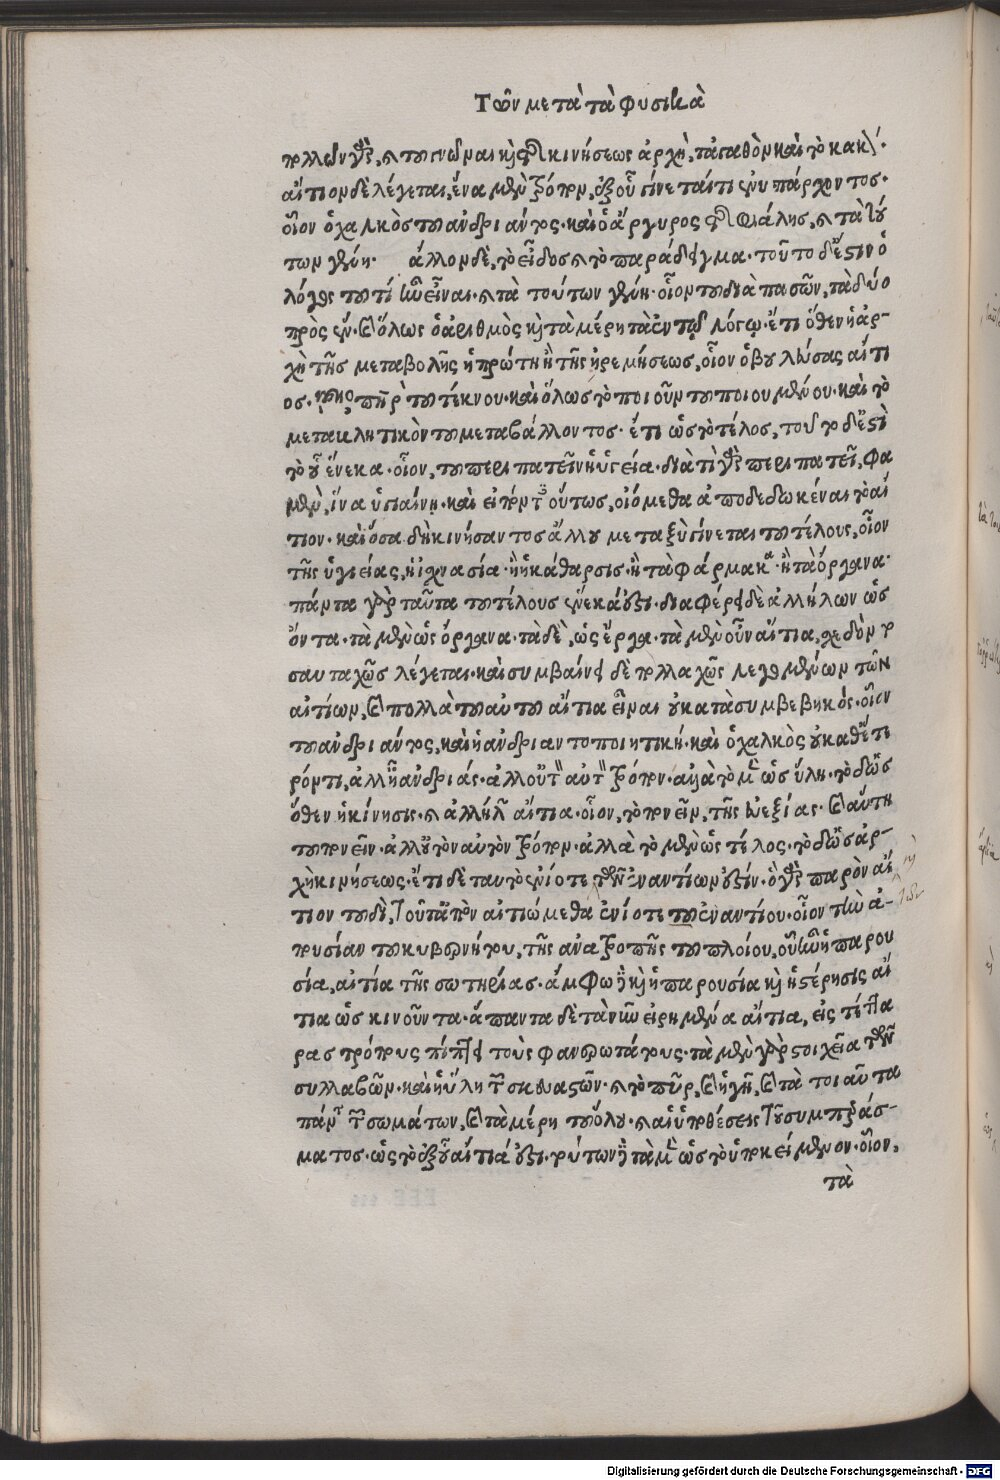 Τῶν μετὰ τὰ φυσικὰ
πολλῶν γὰρ, καὶ τοῦ γνῶναι καὶ τῆς κινήσεως ἀρχὴ, τἀγαθὸν καὶ τὸ κακόν.
αἴτιον δὲ λέγεται, ἕνα μὲν τρόπον, ἐξ οὗ γίνεταί τι ἐνυπάρχοντος.
οἷον ὁ χαλκὸς τοῦ ἀνδριάντος. καὶ ὁ ἄργυρος τῆς φιάλης, καὶ τὰ τού
των γένη. ἄλλον δὲ, τὸ εἶδος καὶ τὸ παράδειγμα. τοῦτο δ' ἔστιν ὁ
λόγος τοῦ τί ἦν εἶναι. καὶ τὰ τούτων γένη. οἷον τοῦ διαπασῶν, τὰ δύο
πρὸς ἕν. καὶ ὅλως ὁ ἀριθμὸς καὶ τὰ μέρη τὰ ἐν τῷ λόγῳ. ἔτι ὅθεν ἡ ἀρ-
χὴ τῆς μεταβολῆς ἡ πρώτη ἢ τῆς ἠρεμήσεως, οἷον ὁ βουλεύσας αἴτι
ος. καὶ ὁ πατὴρ τοῦ τέκνου. καὶ ὅλως τὸ ποιοῦν τοῦ ποιουμένου. καὶ τὸ
μετακλητικὸν τοῦ μεταβάλλοντος. ἔτι ὡς τὸ τέλος, τοῦτο δ' ἐστὶ
τὸ οὗ ἕνεκα. οἷον, τοῦ περιπατεῖν ἡ ὑγεία. διὰ τί γὰρ περιπατεῖ, φα
μὲν, ἵνα ὑγιαίνῃ. καὶ εἰπόντες οὕτως, οἰόμεθα ἀποδεδωκέναι τὸ αἴ
τιον. καὶ ὅσα δὴ κινήσαντος ἄλλου μεταξὺ γίνεται τοῦ τέλους, οἷον
τῆς ὑγιείας, ἡ ἰχνασία. ἢ ἡ κάθαρσις. ἢ τὰ φάρμακα. ἢ τὰ ὄργανα.
πάντα γὰρ ταῦτα τοῦ τέλους ἕνεκά ἐστι. διαφέρει δὲ ἀλλήλων ὡς
ὄντα. τὰ μὲν ὡς ὄργανα. τὰ δὲ, ὡς ἔργα. τὰ μὲν οὖν αἴτια, σχεδὸν το
σαυταχῶς λέγεται. καὶ συμβαίνει δὲ πολλαχῶς λεγομένων τῶν
αἰτίων, καὶ πολλὰ τοῦ αὐτοῦ αἴτια εἶναι οὐ κατὰ συμβεβηκός. οἷον
τοῦ ἀνδριάντος, καὶ ἡ ἀνδριαντοποιητική. καὶ ὁ χαλκὸς οὐ καθ' ἕτε
ρόν τι, ἀλλ' ἢ ἀνδριάς. ἀλλ' οὐ τὸν αὐτὸν τρόπον. ἀλλὰ τὸ μὲν ὡς ὕλη. τὸ δ' ὡς
ὅθεν ἡ κίνησις. καὶ ἀλλήλων αἴτια. οἷον, τὸ πονεῖν, τῆς εὐεξίας. καὶ αὕτη
τοῦ πονεῖν. ἀλλ' οὐ τὸν αὐτὸν τρόπον. ἀλλὰ τὸ μὲν ὡς τέλος. τὸ δ' ὡς ἀρ-
χὴ κινήσεως. ἔτι δὲ ταυτὸ ἐνίοτε τῶν ἐναντίων ἐστίν. ὃ γὰρ παρὸν αἴ
τιον τουδὶ, τοῦτ' ἀπὸν αἰτιώμεθα ἐνίοτε τοῦ ἐναντίου. οἷον τὴν ἀ-
πουσίαν τοῦ κυβερνήτου, τῆς ἀνατροπῆς τοῦ πλοίου, οὗ ἦν ἡ παρου
σία, αἰτία τῆς σωτηρίας. ἄμφω δὲ καὶ ἡ παρουσία καὶ ἡ στέρησις αἴ
τια ὡς κινοῦντα. ἅπαντα δὲ τὰ νῦν εἰρημένα αἴτια, εἰς τέττα
ρας τρόπους πίπτει τοὺς φανερωτάτους. τὰ μὲν γὰρ στοιχεῖα τῶν
συλλαβῶν. καὶ ἡ ὕλη τῶν σκευαστῶν. καὶ τὸ πῦρ, καὶ ἡ γῆ, καὶ τὰ τοιαῦτα
πάντα τῶν σωμάτων, καὶ τὰ μέρη τοῦ ὅλου. καὶ αἱ ὑποθέσεις τοῦ συμπεράσ-
ματος. ὡς τὸ ἐξ οὗ αἴτιά ἐστι. τούτων δὲ τὰ μὲν ὡς τὸ ὑποκείμενον. οἷον,
τὰ
Digitalisierung gefördert durch die Deutsche Forschungsgemeinschaft - DFG